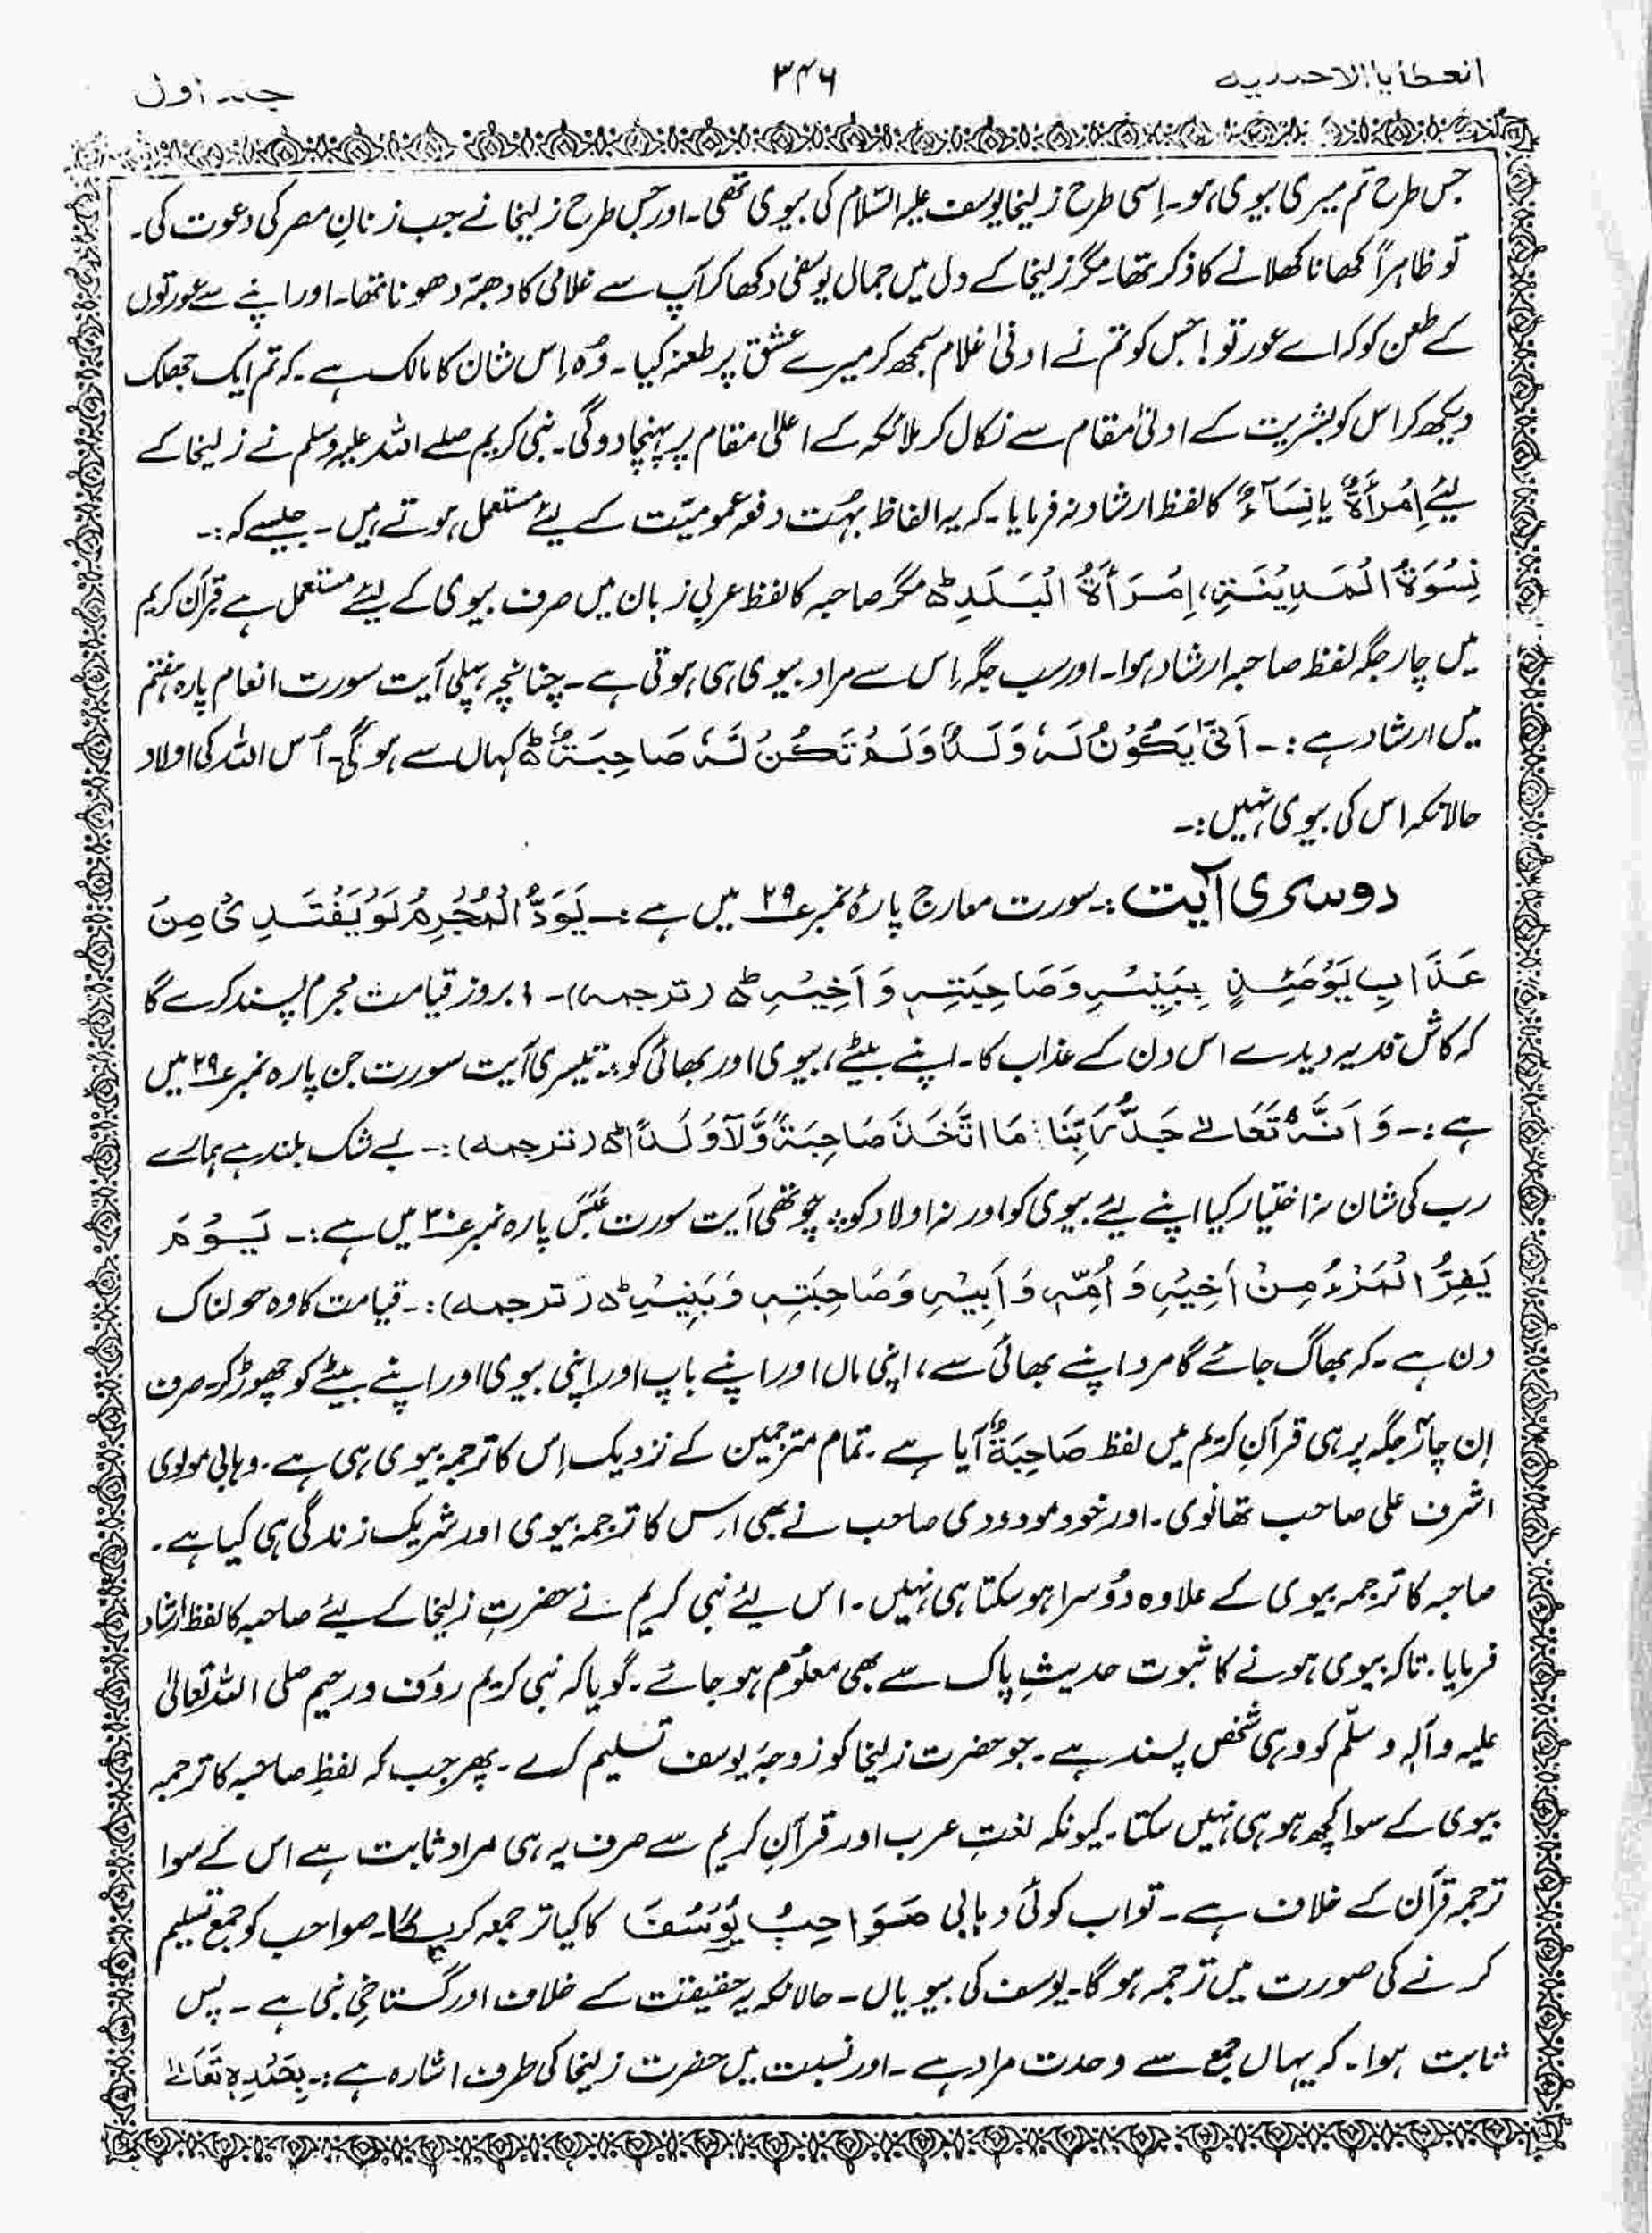 العطایا الاحمدیہ
۳۴۶
جلد اول
جس طرح تم میری بیوی ہو۔ اِسی طرح زلیخا یوسف علیہ السّلام کی بیوی تھی۔ اور جس طرح زلیخا نے جب زنانِ مصر کی دعوت کی۔
تو ظاہراً کھانا کھلانے کا ذکر تھا۔ مگر زلیخا کے دل میں جمال یوسفی دکھا کر آپ سے غلامی کا دھبّہ دھونا تھا۔ اور اپنے سے عورتوں
کے طعن کو کہ اے عورتو! جس کو تم نے ادنیٰ غلام سمجھ کر میرے عشق پر طعنہ کیا۔ وُہ اِس شان کا مالک ہے۔ کہ تم ایک جھلک
دیکھ کر اس کو بشریت کے ادنیٰ مقام سے نکال کر ملائکہ کے اعلیٰ مقام پر پہنچا دو گی۔ نبی کریم صلے اللہ علیہ وسلم نے زلیخا کے
لیئے اِمْرَأَۃٌ یا نِسَآءٌ کا لفظ ارشاد نہ فرمایا۔ کہ یہ الفاظ بہُت دفعہ عمومیّت کے لیئے مستعمل ہوتے ہیں۔ جیسے کہ :۔
نِسْوَۃُ الْمَدِیْنَۃِ، اِمْرَأَۃُ الْبَلَدِ ؕ مگر صاحبہ کا لفظ عربی زبان میں صرف بیوی کے لیئے مستعمل ہے قرآن کریم
میں چار جگہ لفظ صاحبہ ارشاد ہوا۔ اور سب جگہ اِس سے مراد بیوی ہی ہوتی ہے۔ چنانچہ پہلی آیت سورت انعام پارہ ہفتم
میں ارشاد ہے :۔ اَنّٰی یَکُوْنُ لَہٗ وَلَدٌ وَّلَمْ تَکُنْ لَّہٗ صَاحِبَۃٌ ؕ کہاں سے ہو گی۔ اُس اللہ کی اولاد
حالانکہ اس کی بیوی نہیں :۔
دوسری آیت :۔ سورت معارج پارہ نمبر ۲۹ میں ہے :۔ یَوَدُّ الْمُجْرِمُ لَوْ یَفْتَدِیْ مِنْ
عَذَابِ یَوْمَئِذٍۭ بِبَنِیْہِ وَصَاحِبَتِہٖ وَ اَخِیْہِ ؕ (ترجمہ)۔ بروز قیامت مجرم پسند کرے گا
کہ کاش فدیہ دیدے اس دن کے عذاب کا۔ اپنے بیٹے، بیوی اور بھائی کو :۔ تیسری آیت سورت جن پارہ نمبر ۲۹ میں
ہے :۔ وَ اَنَّہٗ تَعَالٰے جَدُّ رَبِّنَا مَا اتَّخَذَ صَاحِبَۃً وَّلَا وَلَدًا ؕ (ترجمہ) :۔ بے شک بلند ہے ہمارے
رب کی شان نہ اختیار کیا اپنے لیئے بیوی کو اور نہ اولاد کو :۔ چوتھی آیت سورت عَبَسَ پارہ نمبر ۳۰ میں ہے :۔ یَوْمَ
یَفِرُّ الْمَرْءُ مِنْ اَخِیْہِ وَ اُمِّہٖ وَ اَبِیْہِ وَصَاحِبَتِہٖ وَبَنِیْہِ ؕ (ترجمہ) :۔ قیامت کا وہ حولناک
دن ہے۔ کہ بھاگ جائے گا مرد اپنے بھائی سے، اپنی ماں اور اپنے باپ اور اپنی بیوی اور اپنے بیٹے کو چھوڑ کر۔ صرف
اِن چار جگہ پر ہی قرآنِ کریم میں لفظ صَاحِبَۃٌ آیا ہے۔ تمام مترجمین کے نزدیک اِس کا ترجمہ بیوی ہی ہے۔ وہابی مولوی
اشرف علی صاحب تھانوی۔ اور خود مودودی صاحب نے بھی اِس کا ترجمہ بیوی اور شریک زندگی ہی کیا ہے۔
صاحبہ کا ترجمہ بیوی کے علاوہ دُوسرا ہو سکتا ہی نہیں۔ اس لیئے نبی کریم نے حضرتِ زلیخا کے لیئے صاحبہ کا لفظ ارشاد
فرمایا۔ تاکہ بیوی ہونے کا ثبوت حدیثِ پاک سے بھی معلوُم ہو جائے۔ گویا کہ نبی کریم رؤف و رحیم صلی اللہ تعالیٰ
علیہ و آلہٖ وسلّم کو وہی شخص پسند ہے۔ جو حضرت زلیخا کو زوجۂ یوسف تسلیم کرے۔ پھر جب کہ لفظِ صاحبہ کا ترجمہ
بیوی کے سوا کچھ ہو ہی نہیں سکتا۔ کیونکہ لغتِ عرب اور قرآنِ کریم سے صرف یہ ہی مراد ثابت ہے اس کے سوا
ترجمہ قرآن کے خلاف ہے۔ تو اب کوئی وہابی صَوَاحِبُ یُوْسُفَ کا کیا ترجمہ کریگا۔ صواحب کو جمع تسلیم
کرنے کی صورت میں ترجمہ ہو گا۔ یوسف کی بیویاں۔ حالانکہ یہ حقیقت کے خلاف اور گستاخیٔ نبی ہے۔ پس
ثابت ہوا۔ کہ یہاں جمع سے وحدت مراد ہے۔ اور نسبت میں حضرت زلیخا کی طرف اشارہ ہے :۔ بِحَمْدِہٖ تَعَالٰے